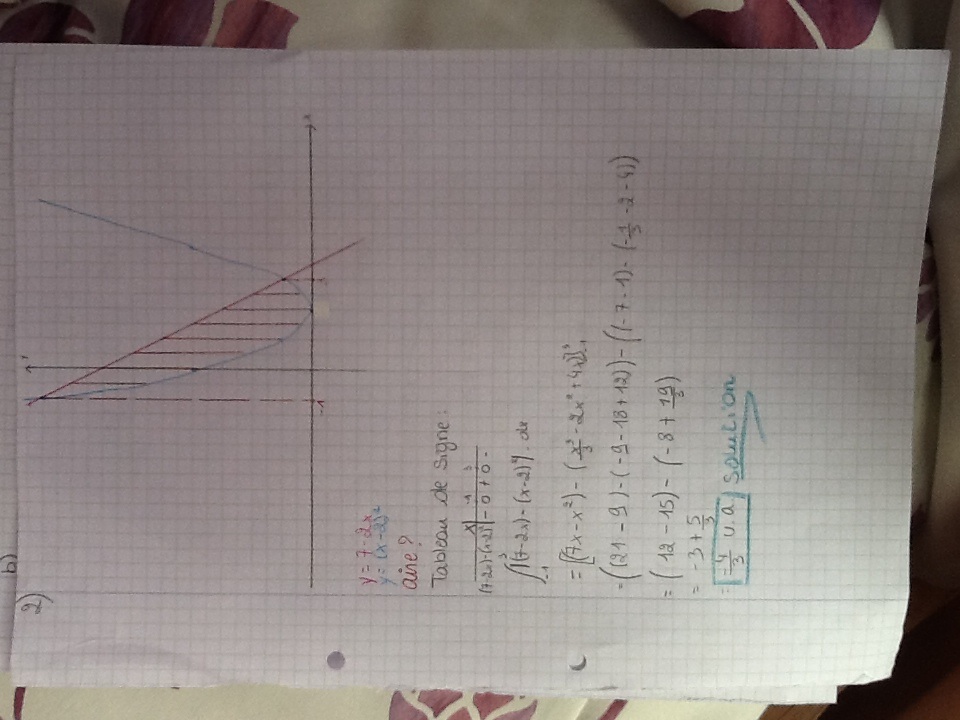 b)
2)
y
x
-1
3
y = 7-2x
y = (x-2)²
aire ?
Tableau de signe :
x | -1 3
(7-2x)-(x-2)² | - 0 + 0 -
∫₋₁³ |(7-2x) - (x-2)²| . dx
= [(7x - x²) - (x³/3 - 2x² + 4x)]₋₁³
= ((21 - 9) - (-9 - 18 + 12)) - ((-7 - 1) - (-1/3 - 2 - 4))
= (12 - 15) - (-8 + 19/3)
= -3 + 5/3
= -4/3 u.a solution